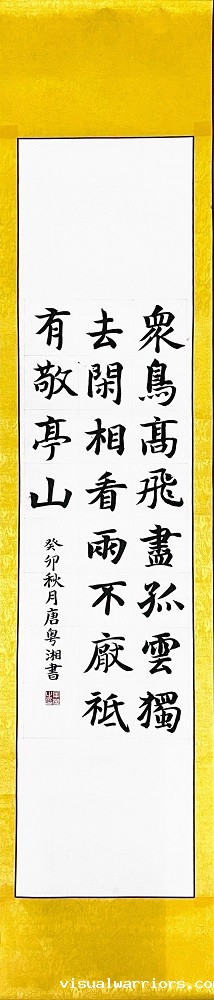 衆鳥髙飛盡孤雲獨
去閑相看兩不厭祗
有敬亭山
癸卯秋月唐粤湘書
visualwarriors.com